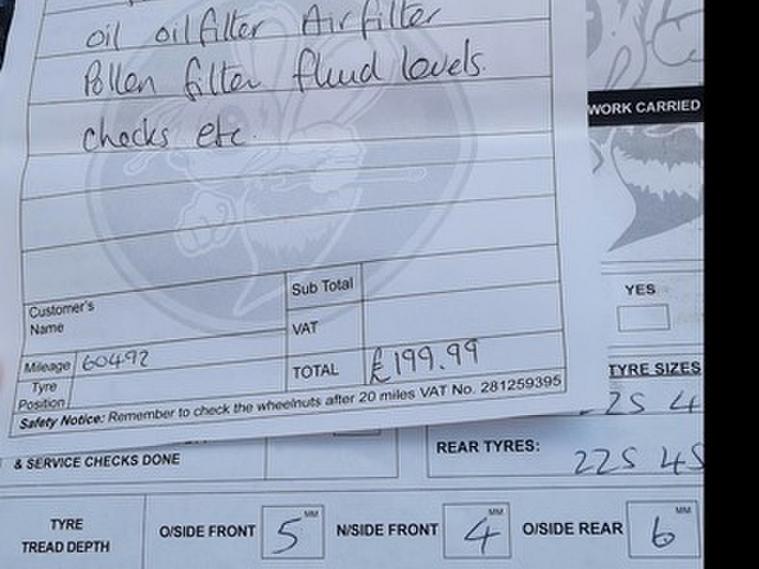 oil oil filter Air filter
Pollen filter fluid levels.
checks etc.
WORK CARRIED
Customer's Name
Sub Total
VAT
YES
Mileage 60492
TOTAL £199.99
TYRE SIZES
Tyre Position
Safety Notice: Remember to check the wheelnuts after 20 miles VAT No. 281259395
225 4
& SERVICE CHECKS DONE
REAR TYRES: 225 45
TYRE TREAD DEPTH
O/SIDE FRONT 5 MM
N/SIDE FRONT 4 MM
O/SIDE REAR 6 MM